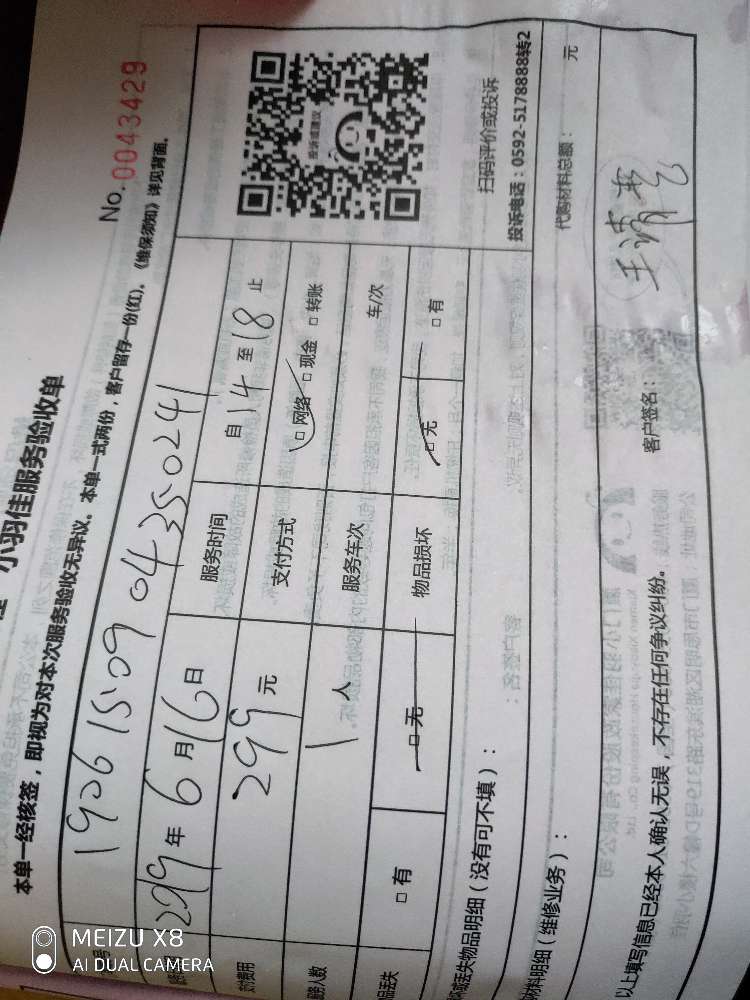 小羽佳服务验收单
No.0043429
本单一经核签，即视为对本次服务验收无异议。本单一式两份，客户留存一份(红)。《维保须知》详见背面。
号 1906150904350241
2019年6月16日 服务时间 自14至18止
费用 299元 支付方式 □网络 □现金 □转账
人数 1人 服务车次 车/次
品丢失 □有 □无 物品损坏 □无 □有
投诉或建议
扫码评价或投诉
投诉电话：0592-5178888转2
丢失物品明细（没有可不填）：
材料明细（维修业务）： 代购材料总额： 元
以上填写信息已经本人确认无误，不存在任何争议纠纷。 客户签名：
MEIZU X8
AI DUAL CAMERA